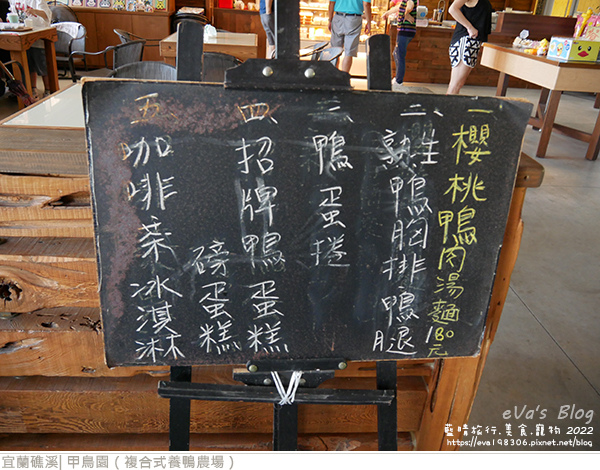 一 櫻桃鴨肉湯麵180元
二、熟生鴨胸排、鴨腿
三、鴨蛋捲
四、招牌鴨蛋糕
磅蛋糕
五、咖啡、茶、冰淇淋
eVa's Blog
藍晴旅行.美食.寵物 2022
https://eva198306.pixnet.net/blog
宜蘭礁溪| 甲鳥園 ( 複合式養鴨農場 )